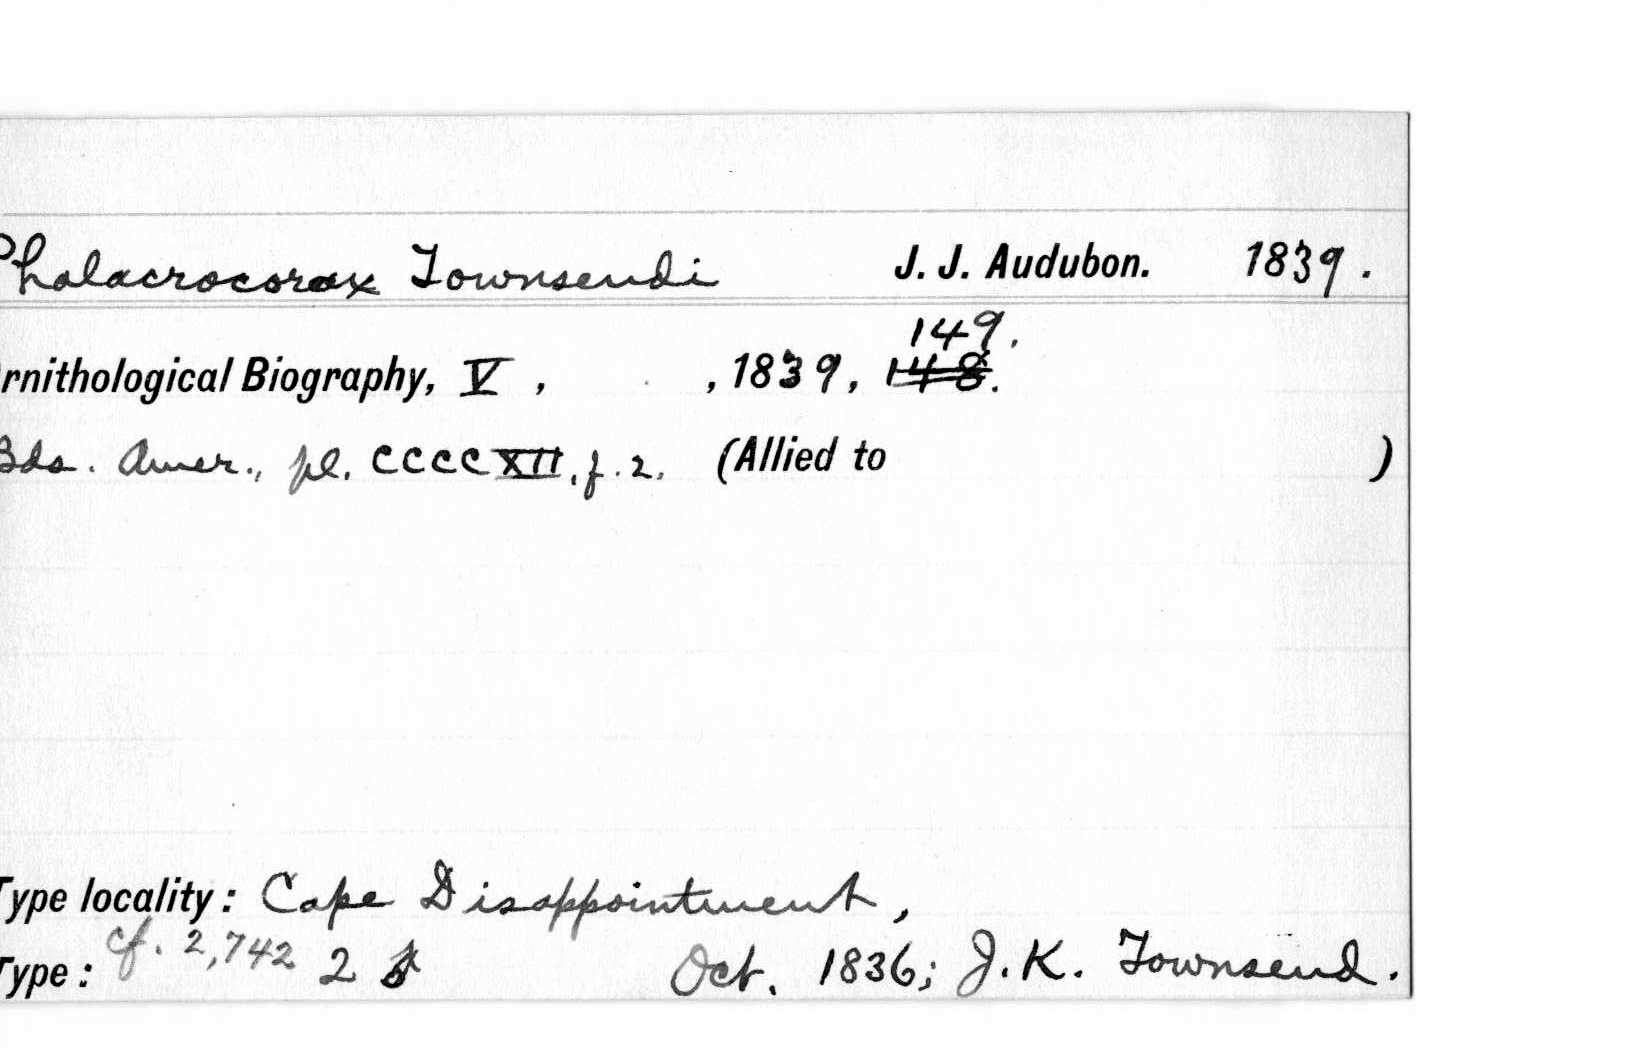 Phalacrocorax Townsendi J. J. Audubon. 1839.
149.
rnithological Biography, V, , 1839, 148.
Bds. Amer., pl. CCCCXII, f. 2. (Allied to )
Type locality: Cape Disappointment,
Type: cf. 2,742 2 Oct. 1836; J. K. Townsend.